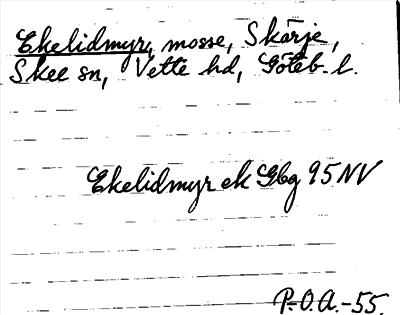 Ekelidmyr, mosse, Skärje,
Skee sn, Vette hd, Göteb. l.
Ekelidmyr ek Gbg 95 NV
P.O.A.-55.